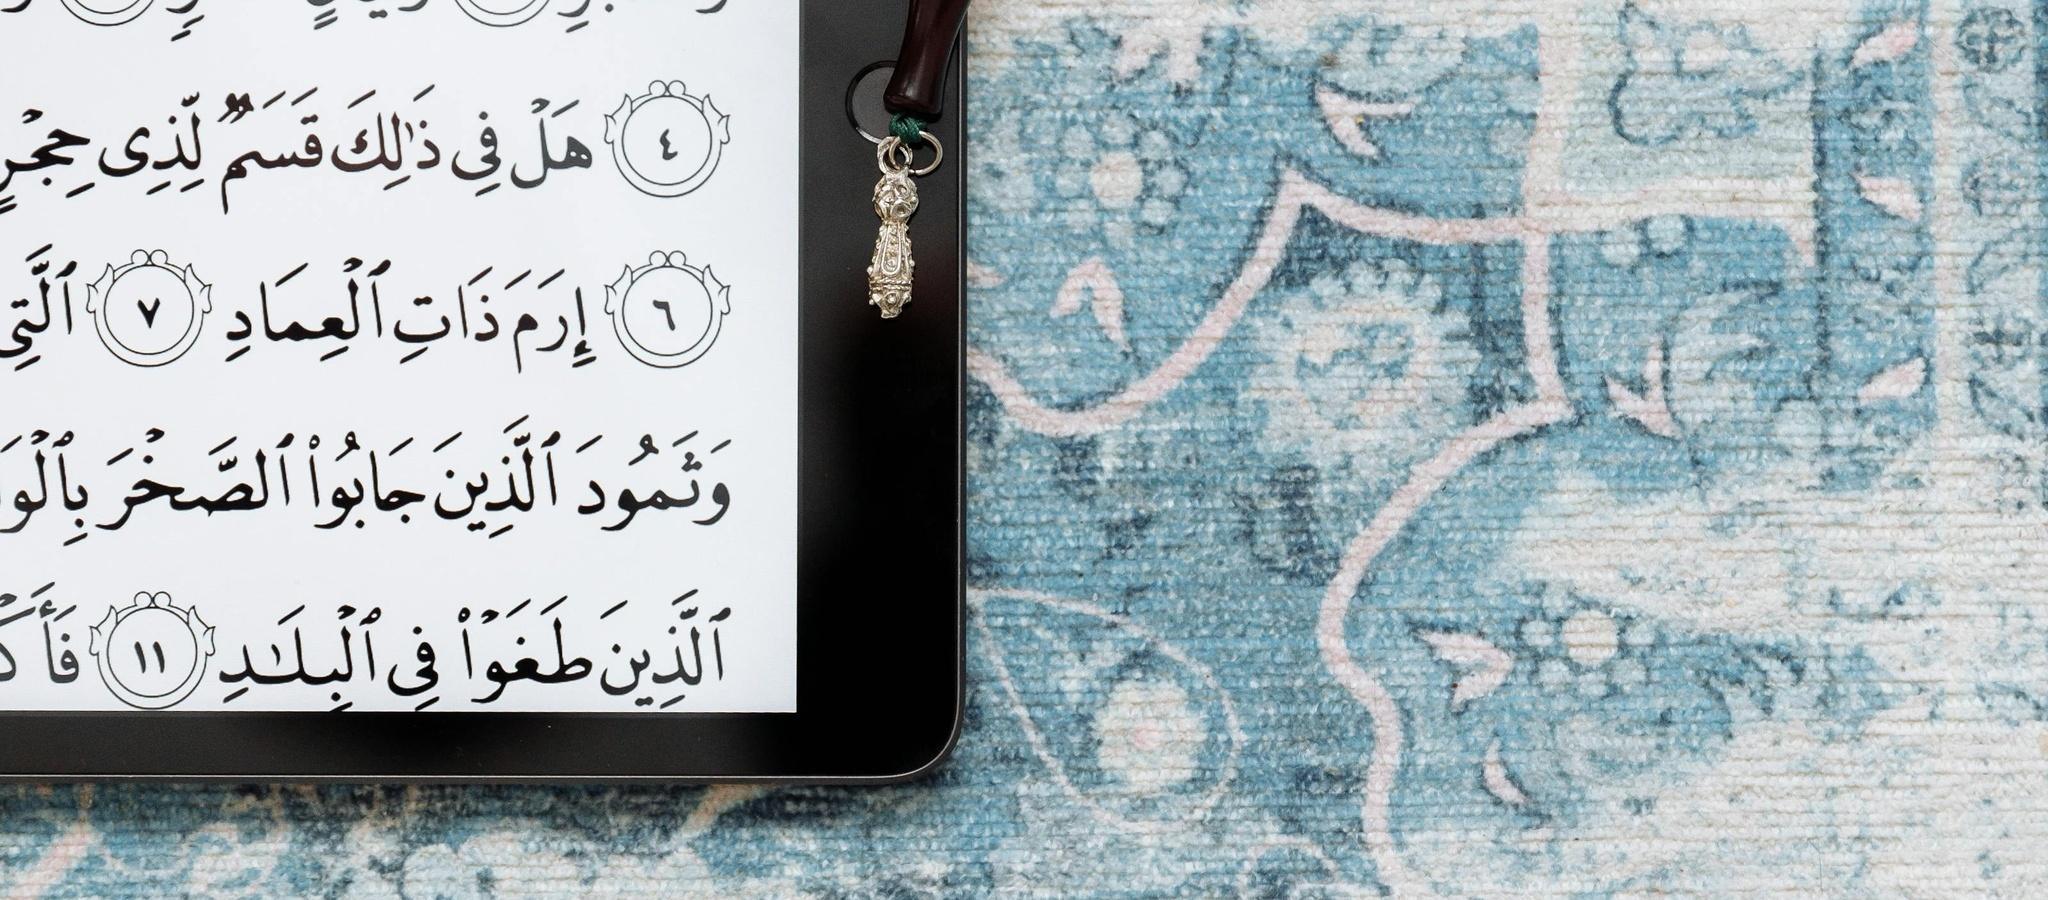 ٤ هَلْ فِى ذَٰلِكَ قَسَمٌۭ لِّذِى حِجْرٍ
٦ إِرَمَ ذَاتِ ٱلْعِمَادِ ٧ ٱلَّتِى
وَثَمُودَ ٱلَّذِينَ جَابُوا۟ ٱلصَّخْرَ
ٱلَّذِينَ طَغَوْا۟ فِى ٱلْبِلَـٰدِ ١١